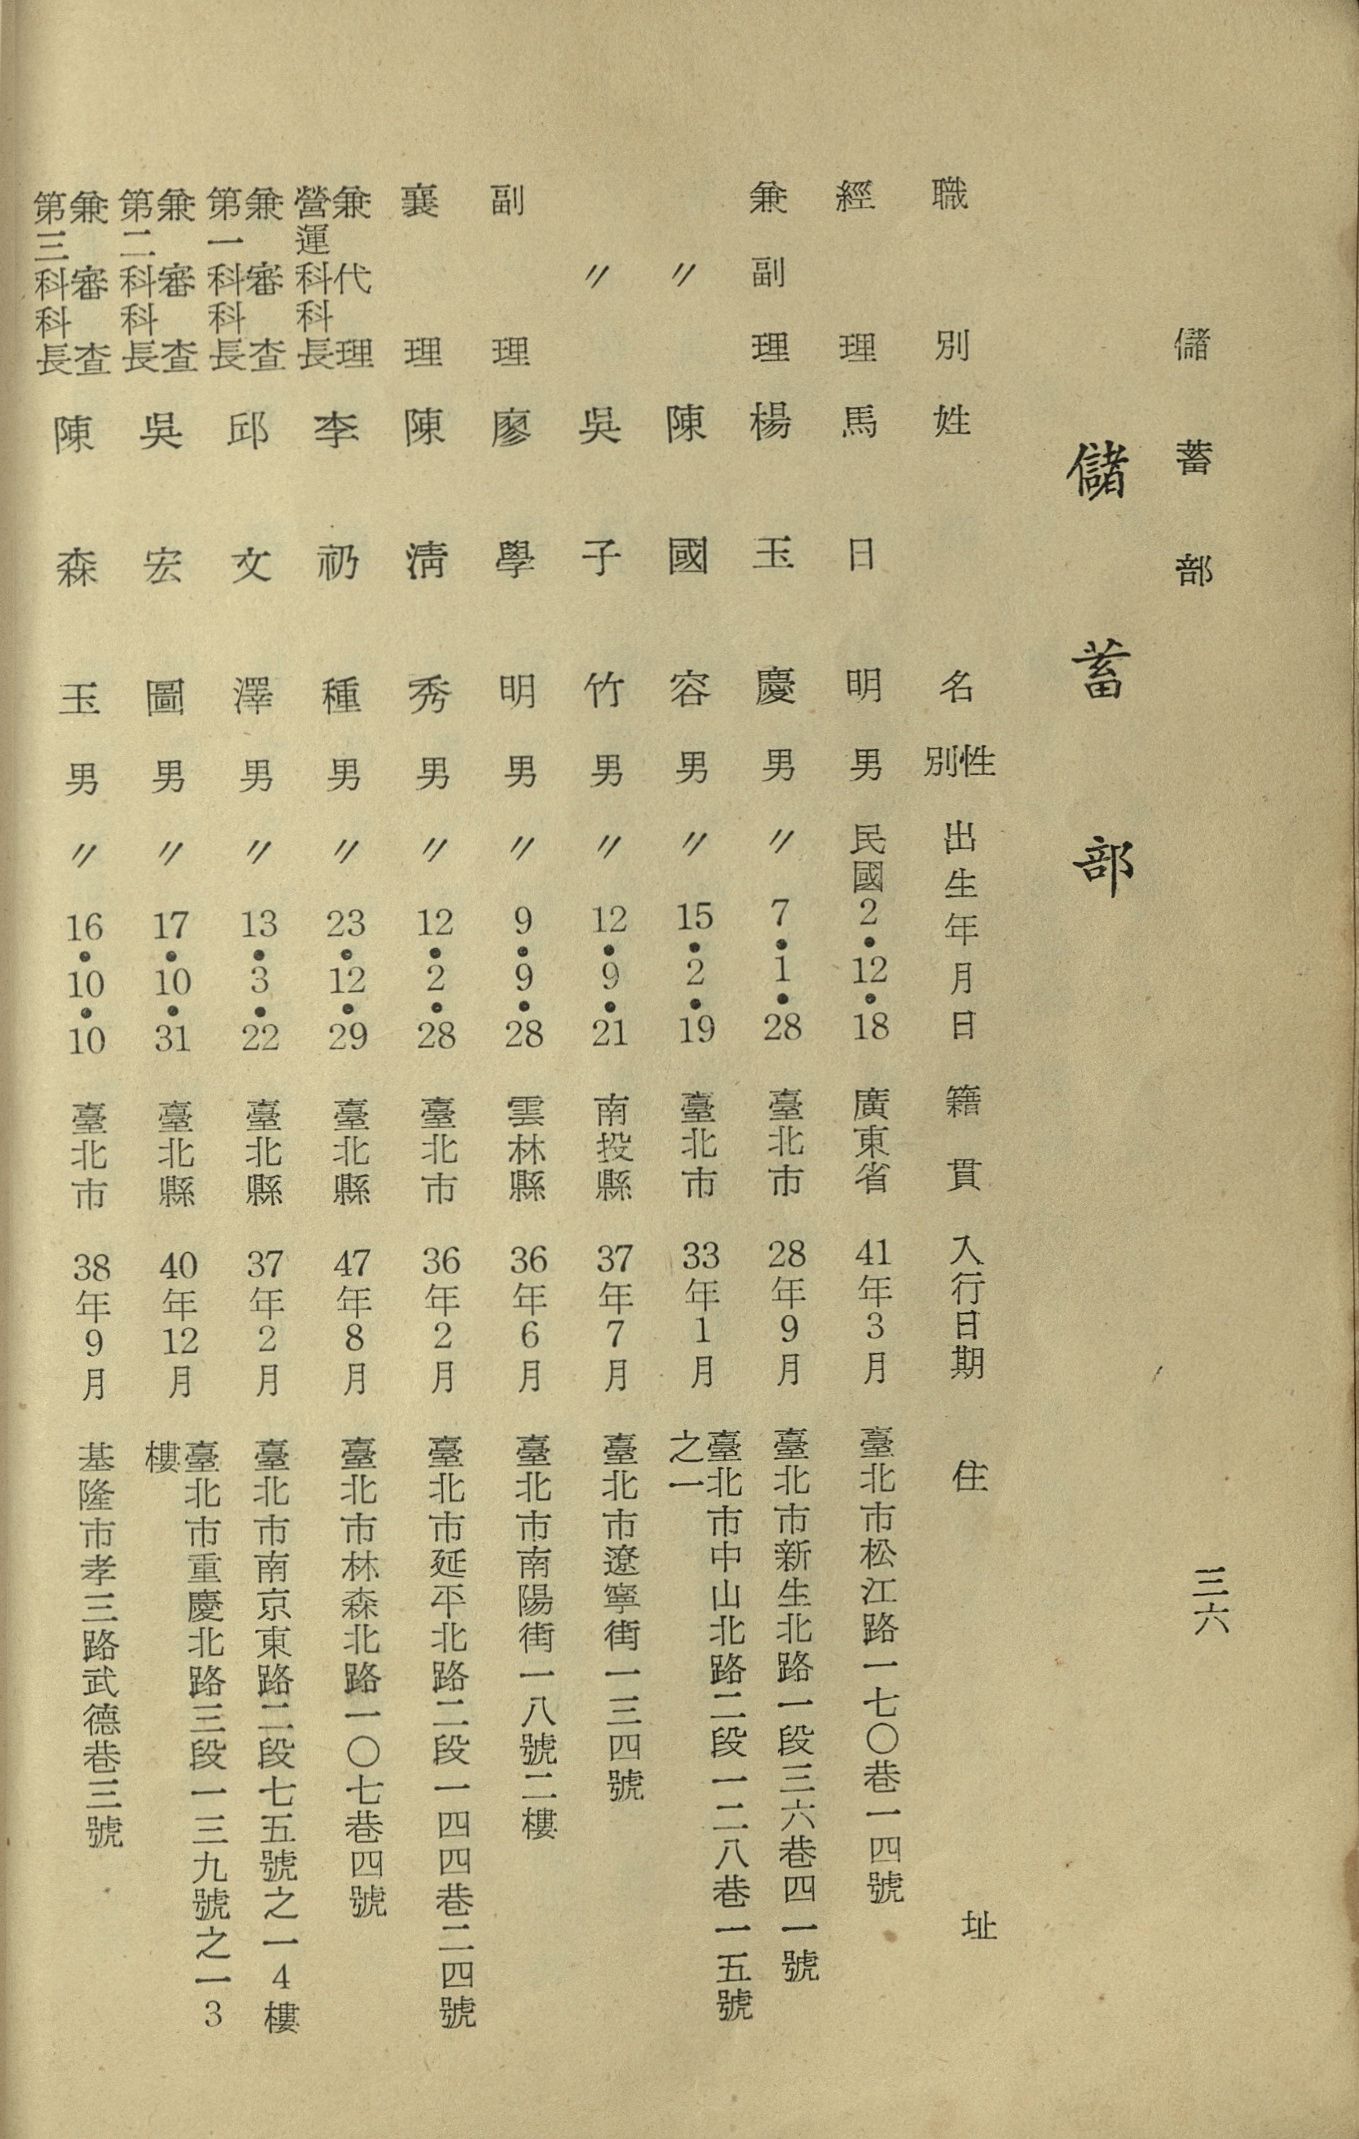 儲蓄部
三六
儲蓄部
職別 姓名 性別 出生年月日 籍貫 入行日期 住址
經理 馬日明 男 民國2•12•18 廣東省 41年3月 臺北市松江路一七〇巷一四號
兼副理 楊玉慶 男 〃7•1•28 臺北市 28年9月 臺北市新生北路一段三六巷四一號
〃 陳國容 男 〃15•2•19 臺北市 33年1月 臺北市中山北路二段一二八巷一五號
之一
〃 吳子竹 男 〃12•9•21 南投縣 37年7月 臺北市遼寧街一三四號
副理 廖學明 男 〃9•9•28 雲林縣 36年6月 臺北市南陽街一八號二樓
襄理 陳淸秀 男 〃12•2•28 臺北市 36年2月 臺北市延平北路二段一四四巷二四號
兼代理
營運科科長 李礽種 男 〃23•12•29 臺北縣 47年8月 臺北市林森北路一〇七巷四號
兼審查
第一科科長 邱文澤 男 〃13•3•22 臺北縣 37年2月 臺北市南京東路二段七五號之一4樓
兼審查
第二科科長 吳宏圖 男 〃17•10•31 臺北縣 40年12月 臺北市重慶北路三段一三九號之一3
樓
兼審查
第三科科長 陳森玉 男 〃16•10•10 臺北市 38年9月 基隆市孝三路武德巷三號